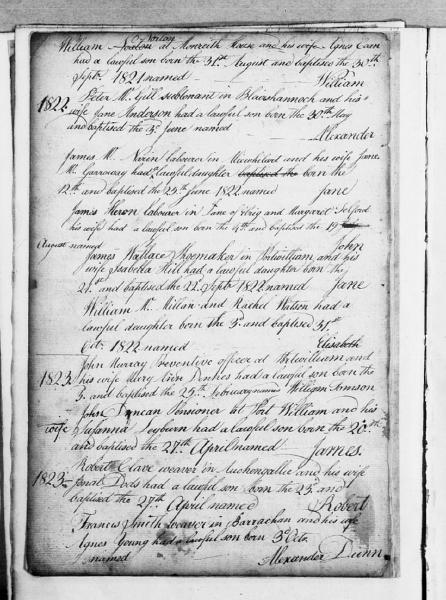 William Nolon Donlay at Monreith House and his wife Agnes Cain
had a lawful son born the 31st August and baptised the 30th
Septr 1821 named William
1822 Peter Mc Gill subtenant in Blairshannoch and his
wife Jane Anderson had a lawful son born the 30th May
and baptised the 3d June named
Alexander
James Mc Niren labourer in and his wife Jane
Mc Garrowsy had lawful daughter baptised the born the
12th and baptised the 25th June 1822 named Jane
James Heron labourer in Lane of and Margaret Telford
his wife had a lawful son born the 4th and baptised the 19
August named John
James Wallace Shoemaker in Portwilliam and his
wife Isabella Hill had a lawful daughter born the
21st and baptised the 22 Septr 1822 named Jane
William Mc Millan and Rachel Watson had a
lawful daughter born the 5 and baptised 31st
Octr 1822 named Elisabeth
John Murray Preventive officer at Portwilliam and
1823 his wife Mery Ann had a lawful son born the
5 and baptised the 25th February named William Simson
John Duncan Pensioner at Port William and his
wife Susanna had a lawful son born the 20th
and baptised the 27th April named James
Robert Clave weaver in Auchengallie and his wife
1823 Jonat Dods had a lawful son born the 23d and
baptised the 27th April named Robert
Francis Smith weaver in Barrachan and his wife
Agnes Young had a lawful son born 3d Octr
named Alexander Dunn